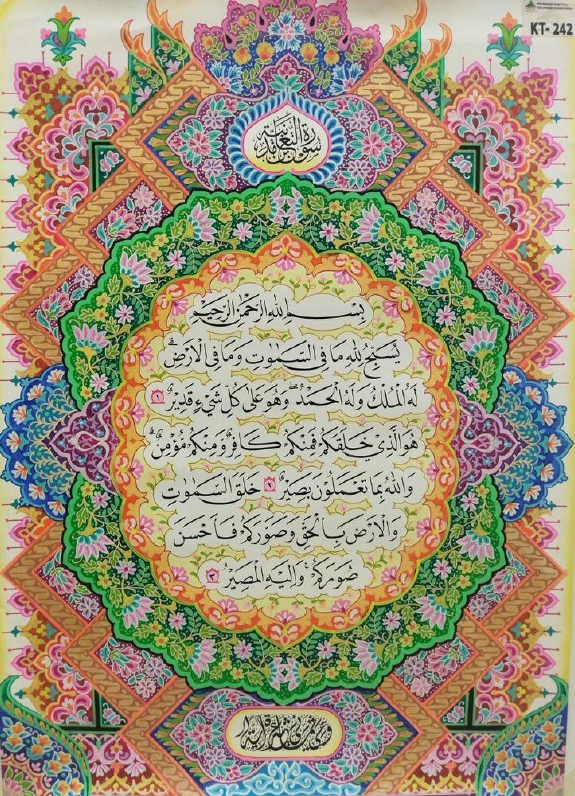 KT- 242
سورة التغابن
بِسْمِ اللهِ الرَّحْمٰنِ الرَّحِيْمِ
يُسَبِّحُ لِلّٰهِ مَا فِى السَّمٰوٰتِ وَمَا فِى الْاَرْضِۚ
لَهُ الْمُلْكُ وَلَهُ الْحَمْدُۖ وَهُوَ عَلٰى كُلِّ شَيْءٍ قَدِيْرٌ ١
هُوَ الَّذِيْ خَلَقَكُمْ فَمِنْكُمْ كَافِرٌ وَّمِنْكُمْ مُّؤْمِنٌۗ
وَاللهُ بِمَا تَعْمَلُوْنَ بَصِيْرٌ ٢ خَلَقَ السَّمٰوٰتِ
وَالْاَرْضَ بِالْحَقِّ وَصَوَّرَكُمْ فَاَحْسَنَ
صُوَرَكُمْۚ وَاِلَيْهِ الْمَصِيْرُ ٣